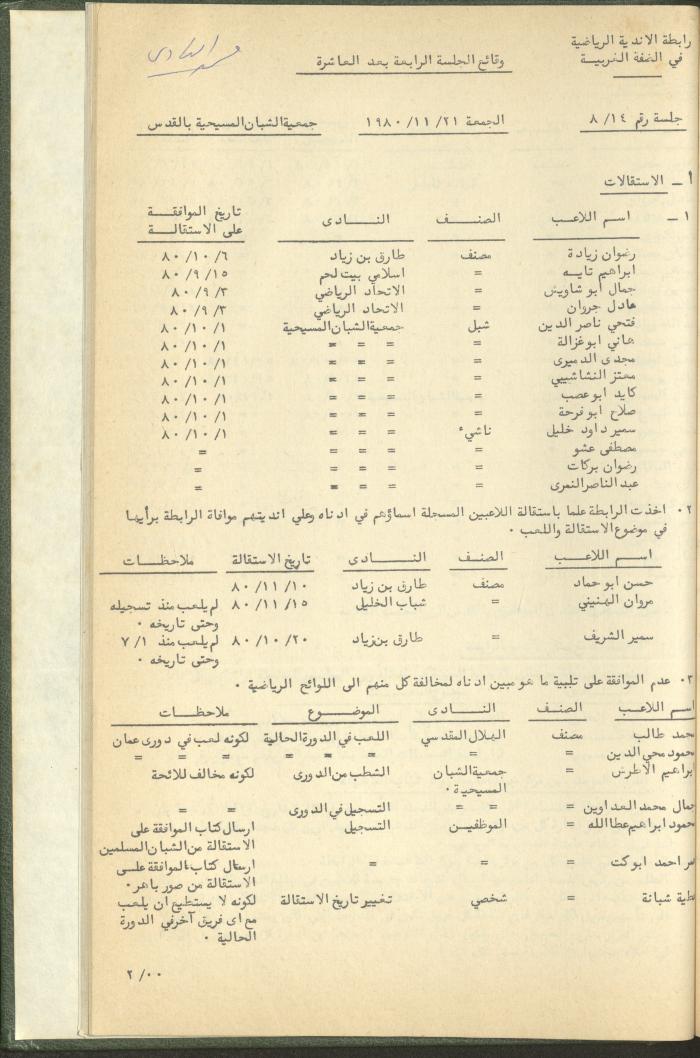 رابطة الاندية الرياضية
في الضفة الغربية
وقائع الجلسة الرابعة بعد العاشرة
جلسة رقم ٨/١٤ الجمعة ١٩٨٠/١١/٢١ جمعية الشبان المسيحية بالقدس
أ ـ الاستقالات
١ ـ اسم اللاعب الصنف النادى تاريخ الموافقة على الاستقالة
رضوان زيادة مصنف طارق بن زياد ٨٠/١٠/٦
ابراهيم تايه = اسلامي بيت لحم ٨٠/٩/١٥
جمال ابو شاويش = الاتحاد الرياضي ٨٠/٩/٣
عادل جروان = الاتحاد الرياضي ٨٠/٩/٣
فتحي ناصر الدين شبل جمعية الشبان المسيحية ٨٠/١٠/١
هاني ابو غزالة = = = = ٨٠/١٠/١
مجدى الدميرى = = = = ٨٠/١٠/١
معتز النشاشيبي = = = = ٨٠/١٠/١
كايد ابو عصب = = = = ٨٠/١٠/١
صلاح ابو فرحة = = = = ٨٠/١٠/١
سمير داود خليل ناشيء = = = ٨٠/١٠/١
مصطفى عشو = = = = =
رضوان بركات = = = = =
عبد الناصر النمرى = = = = =
٠٢ اخذت الرابطة علما باستقالة اللاعبين المسجلة اسماؤهم في ادناه وعلي انديتهم موافاة الرابطة برأيها
في موضوع الاستقالة واللعب ٠
اسم اللاعب الصنف النادى تاريخ الاستقالة ملاحظات
حسن ابو حماد مصنف طارق بن زياد ٨٠/١١/١٠
مروان الهنيني = شباب الخليل ٨٠/١١/١٥ لم يلعب منذ تسجيله
وحتى تاريخه ٠
سمير الشريف = طارق بن زياد ٨٠/١٠/٢٠ لم يلعب منذ ٧/١
وحتى تاريخه ٠
٠٣ عدم الموافقة على تلبية ما هو مبين ادناه لمخالفة كل منهم الى اللوائح الرياضية ٠
اسم اللاعب الصنف النادى الموضوع ملاحظات
محمد طالب مصنف الهلال المقدسي اللعب في الدورة الحالية لكونه لعب في دورى عمان
حمود محي الدين = = = = = = = =
براهيم الاطرش = جمعية الشبان المسيحية ٠ الشطب من الدورى لكونه مخالف للائحة
جمال محمد العداوين = = = التسجيل في الدورى = =
حمود ابراهيم عطا الله = الموظفين التسجيل ارسال كتاب الموافقة على
الاستقالة من الشبان المسلمين
احمد ابو كت = = = ارسال كتاب الموافقة على
الاستقالة من صور باهر ٠
طية شبانة = شخصي تغيير تاريخ الاستقالة لكونه لا يستطيع ان يلعب
مع اى فريق آخر في الدورة
الحالية ٠
٢/٠٠